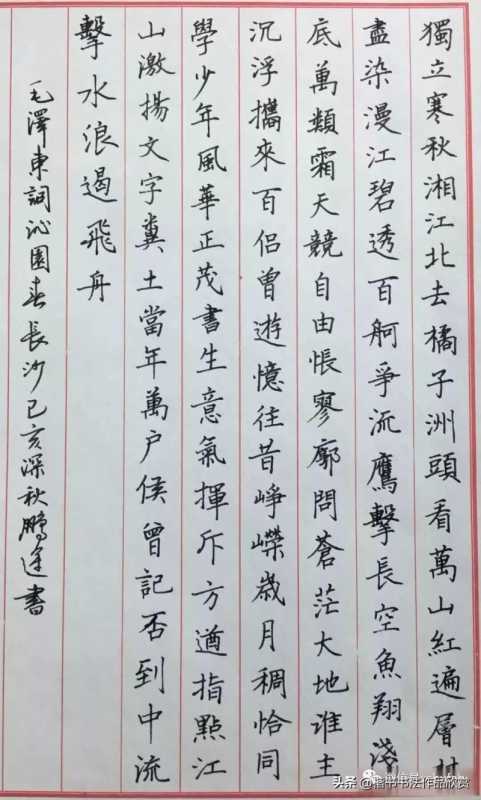 獨立寒秋湘江北去橘子洲頭看萬山紅遍層林
盡染漫江碧透百舸爭流鷹擊長空魚翔淺
底萬類霜天競自由悵寥廓問蒼茫大地誰主
沉浮攜來百侶曾遊憶往昔崢嶸歲月稠恰同
學少年風華正茂書生意氣揮斥方遒指點江
山激揚文字糞土當年萬户侯曾記否到中流
擊水浪遏飛舟
毛澤東詞沁園春長沙己亥深秋鵬書
头条 @楷书书法作品欣赏